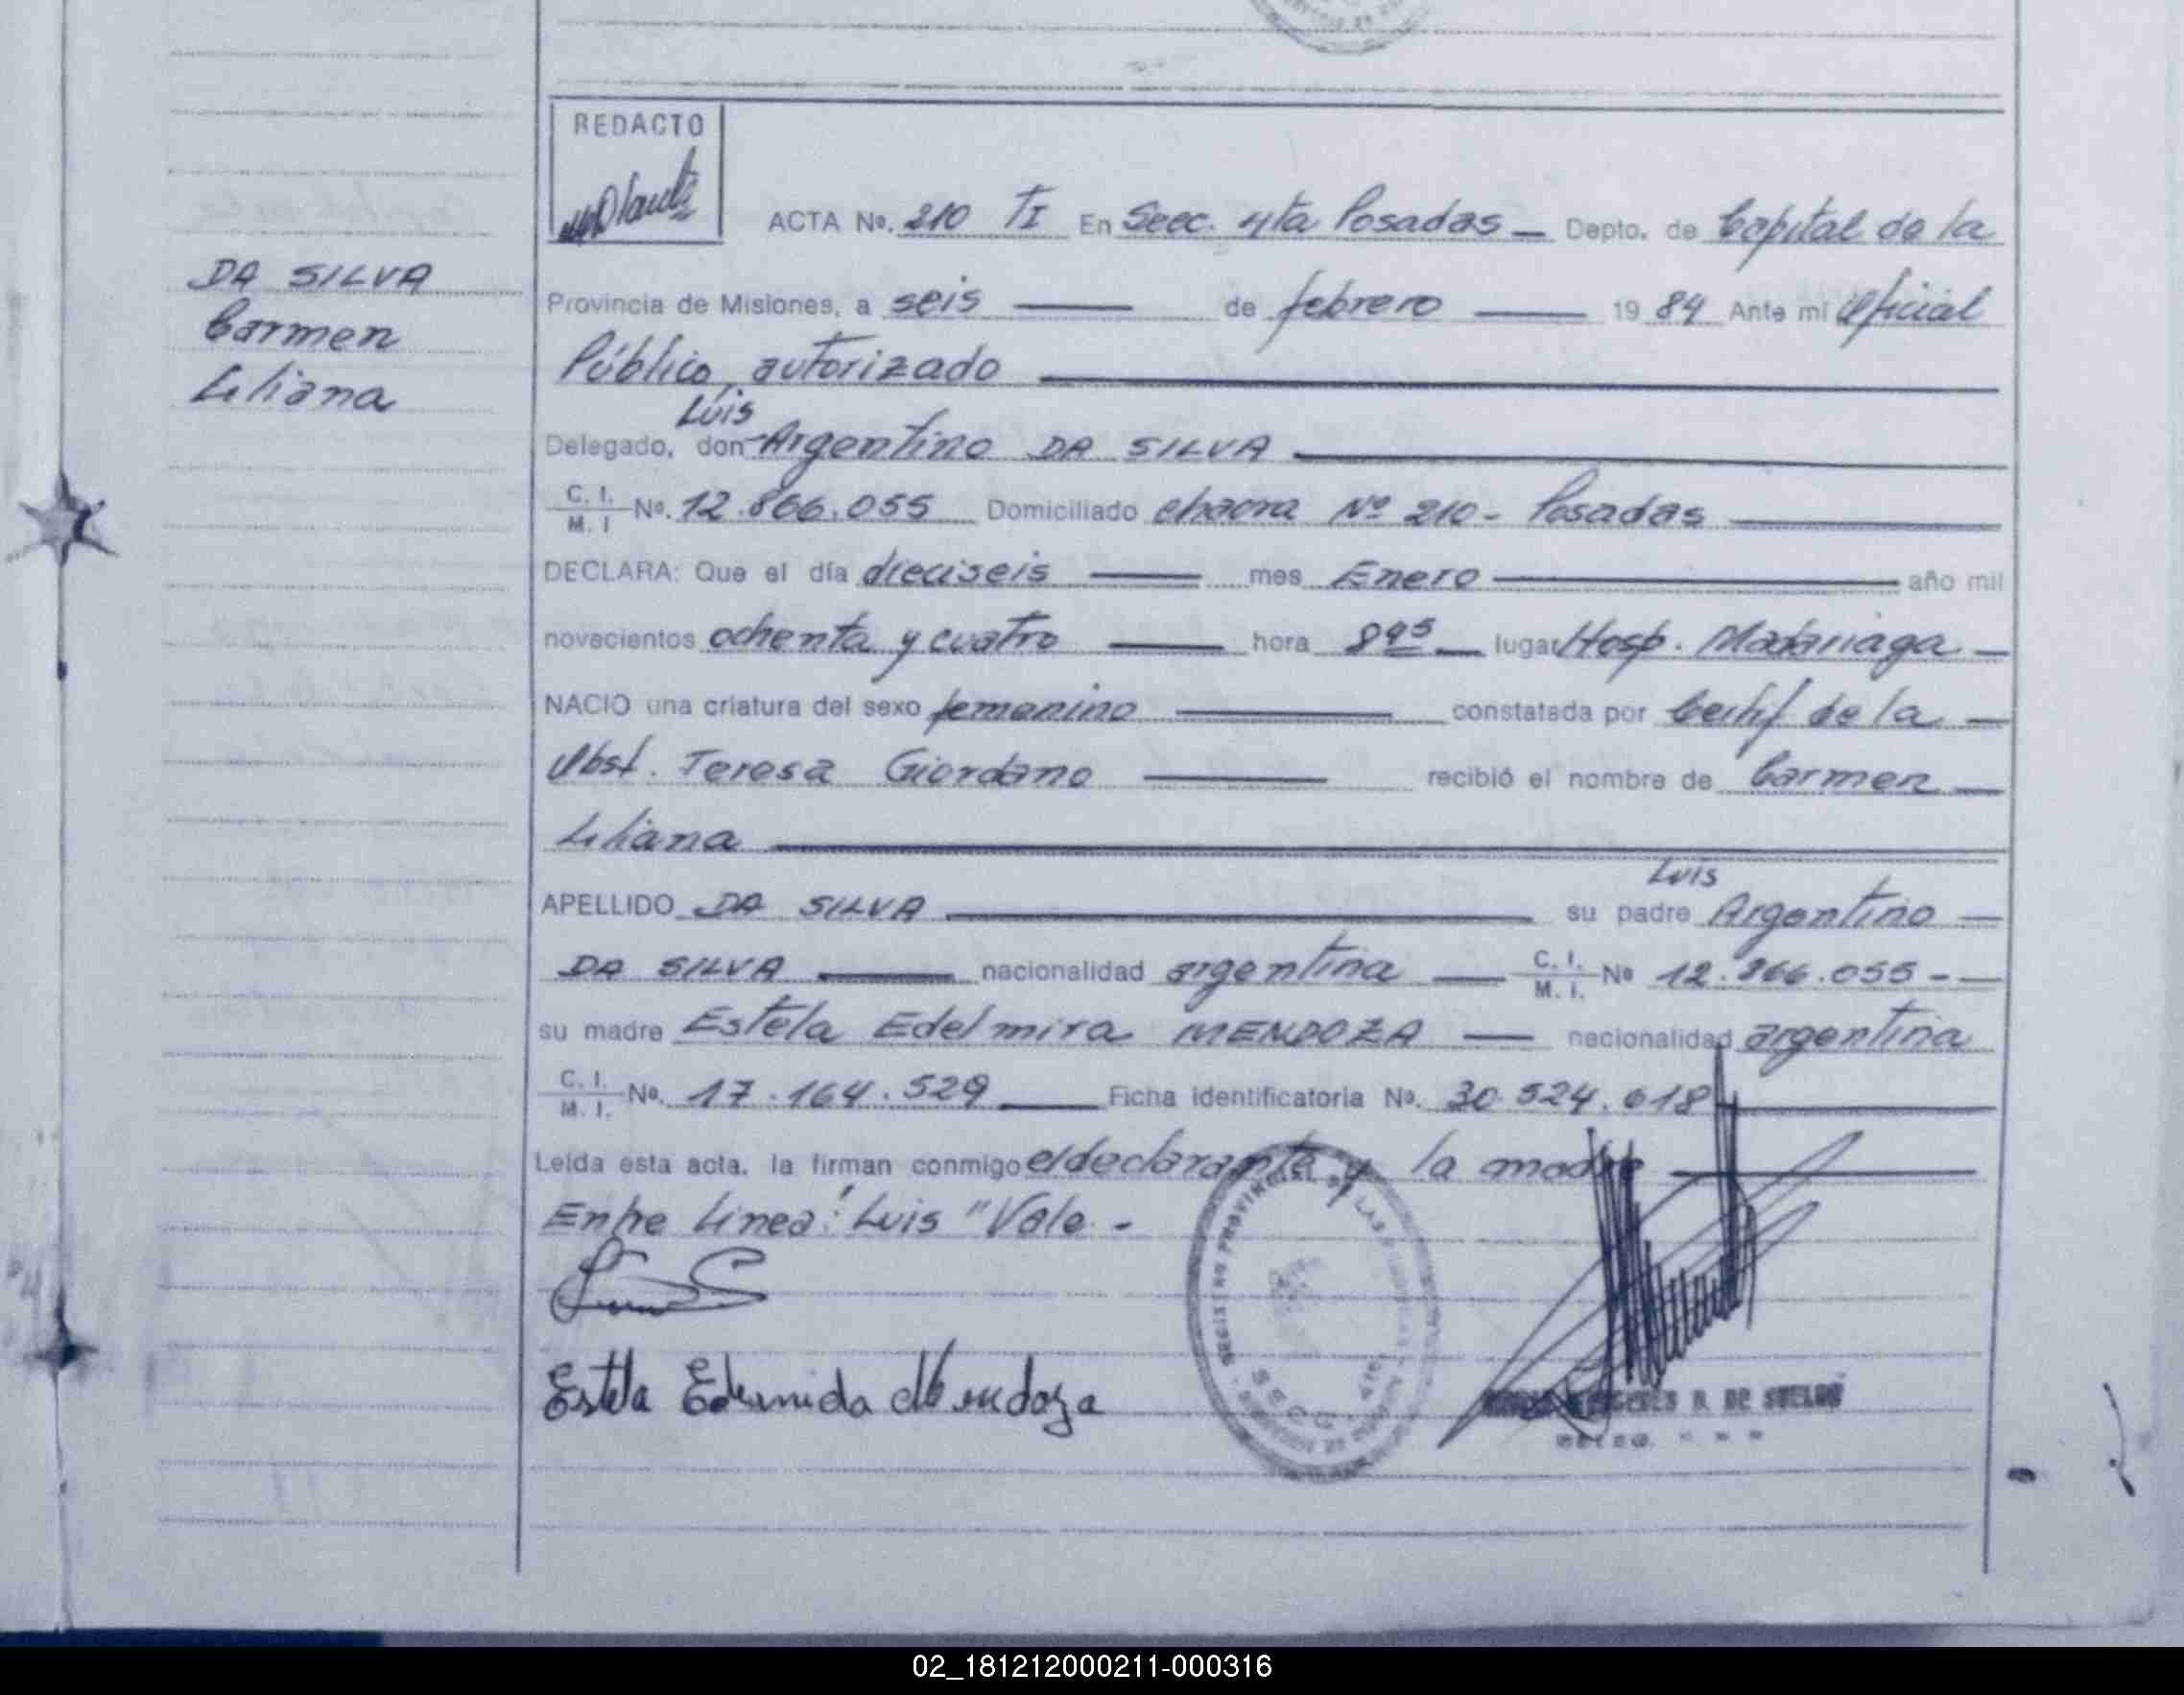 REDACTO
ACTA No. 210 TI En Secc. 4ta Posadas — Depto. de Capital de la
DA SILVA
Carmen
Liliana
Provincia de Misiones, a seis — de febrero — 1984 Ante mi Oficial
Público autorizado —
Luis
Delegado, don Argentino DA SILVA —
C. I. / M. I No. 12.866.055 Domiciliado chacra Nº 210 - Posadas —
DECLARA: Que el día dieciseis — mes Enero — año mil
novecientos ochenta y cuatro — hora 8 45 — lugar Hosp. Madariaga —
NACIO una criatura del sexo femenino — constatada por Certif de la —
Obst. Teresa Giordano — recibió el nombre de Carmen —
Liliana —
Luis
APELLIDO DA SILVA — su padre Argentino —
DA SILVA — nacionalidad argentina — C. I. / M. I. No 12.866.055 - —
su madre Estela Edelmira MENDOZA — nacionalidad argentina
C. I. / M. I. No. 17.164.529 — Ficha identificatoria No. 30.524.618 —
Leída esta acta, la firman conmigo el declarante y la madre —
Entre Linea: "Luis" Vale. -
Estela Edermida Mendoza
REGISTRO PROVINCIAL DE LAS PERSONAS
SECC. 4ta
R. DE SUELDO
02_181212000211-000316